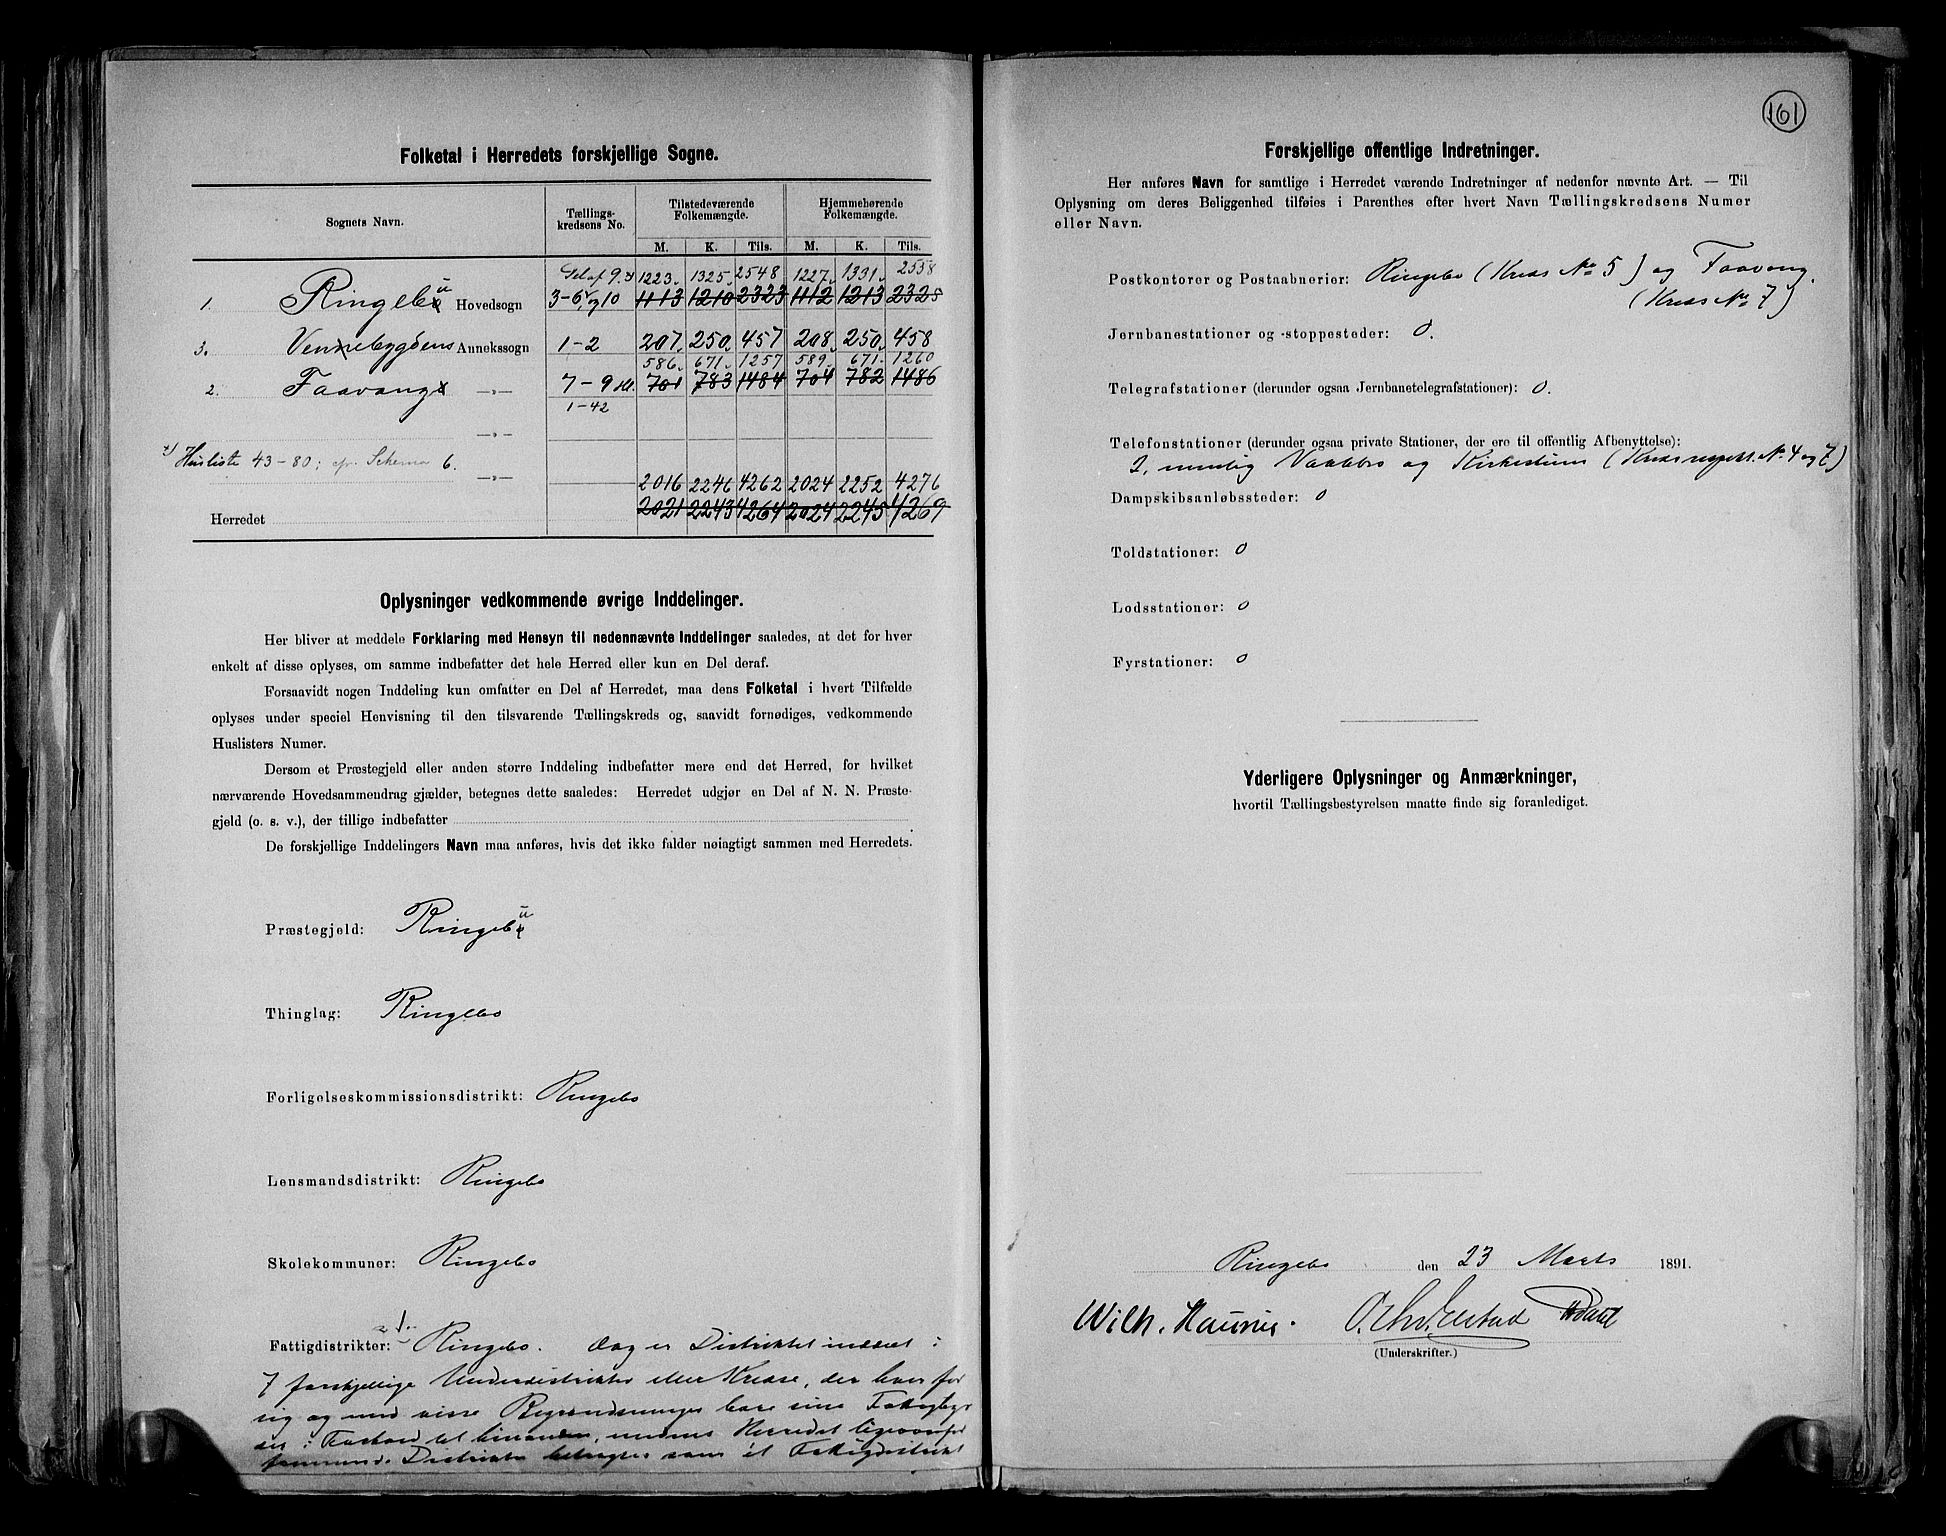 Folketal i Herredets forskjellige Sogne.
Sognets Navn. Tællings-kredsens No. Tilstedeværende Folkemængde. Hjemmehørende Folkemængde.
M. K. Tils. M. K. Tils.
Del af 9. 1223. 1325. 2548 1227. 1331. 2558
1. Ringebu Hovedsogn 3-6, og 10 1113 1210 2323 1112 1213 2325
3. Vennebygdens Annekssogn 1-2 207. 250. 457 208. 250. 458
586. 671. 1257 589. 671. 1260
2. Faavang -„- 7-9 701 783 1484 704 782 1486
1-42
-„-
x) Husliste 43-80; cfr. Schema 6.
-„- 2016 2246 4262 2024 2252 4276
Herredet 2021 2243 4264 2024 2245 4269
Oplysninger vedkommende øvrige Inddelinger.
Her bliver at meddele Forklaring med Hensyn til nedennævnte Inddelinger saaledes, at det for hver
enkelt af disse oplyses, om samme indbefatter det hele Herred eller kun en Del deraf.
Forsaavidt nogen Inddeling kun omfatter en Del af Herredet, maa dens Folketal i hvert Tilfælde
oplyses under speciel Henvisning til den tilsvarende Tællingskreds og, saavidt fornødiges, vedkommende
Huslisters Numer.
Dersom et Præstegjeld eller anden større Inddeling indbefatter mere end det Herred, for hvilket
nærværende Hovedsammendrag gjælder, betegnes dette saaledes: Herredet udgjør en Del af N. N. Præste-
gjeld (o. s. v.), der tillige indbefatter
De forskjellige Inddelingers Navn maa anføres, hvis det ikke falder nøiagtigt sammen med Herredets.
Præstegjeld: Ringebu
Thinglag: Ringebo
Forligelseskommissionsdistrikt: Ringebo
Lensmandsdistrikt: Ringebo
Skolekommuner: Ringebo
Fattigdistrikter: Ringebo. Dog er Distriktet inddelt i
7 forskjellige Underdistrikter eller Kredse, der hver for
sig og med visse Begrændsninger bære sine
i Forhold til hinanden, medens Herredet ligeoverfor
Distrikter betragtes som ét Fattigdistrikt
161
Forskjellige offentlige Indretninger.
Her anføres Navn for samtlige i Herredet værende Indretninger af nedenfor nævnte Art. — Til
Oplysning om deres Beliggenhed tilføies i Parenthes efter hvert Navn Tællingskredsens Numer
eller Navn.
Postkontorer og Postaabnerier: Ringebo (Kreds No 5) og Faavang.
(Kreds No 7)
Jernbanestationer og -stoppesteder: 0.
Telegrafstationer (derunder ogsaa Jernbanetelegrafstationer): 0.
Telefonstationer (derunder ogsaa private Stationer, der ere til offentlig Afbenyttelse):
2, nemlig Vaalebro og Kirkestuen (Kreds respekt. No 4 og 7)
Dampskibsanløbssteder: 0
Toldstationer: 0
Lodsstationer: 0
Fyrstationer: 0
Yderligere Oplysninger og Anmærkninger,
hvortil Tællingsbestyrelsen maatte finde sig foranlediget.
Ringebo den 23 Marts 1891.
Wilh.
(Underskrifter.)